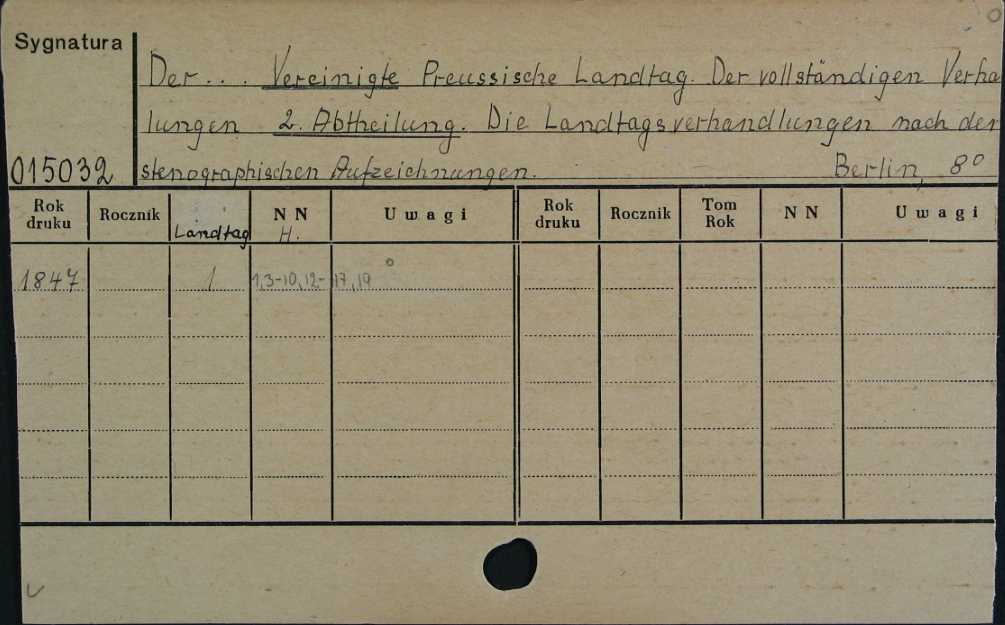 Sygnatura
Der ... Vereinigte Preussische Landtag. Der vollständigen Verha
lungen 2. Abtheilung. Die Landtagsverhandlungen nach der
015032 stenographischen Aufzeichnungen. Berlin, 8º
Rok druku Rocznik Landtag NN H. Uwagi Rok druku Rocznik Tom Rok NN Uwagi
1847 1 1,3-10,12-17,19